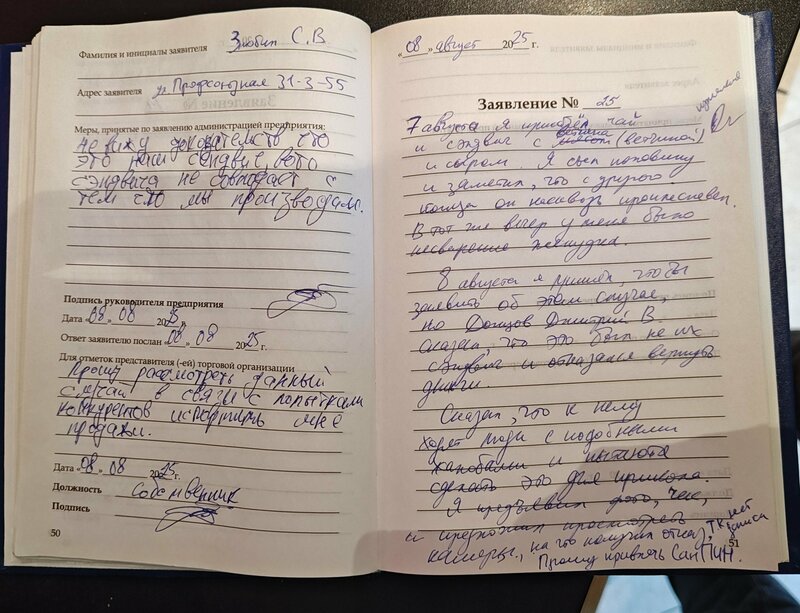 Фамилия и инициалы заявителя Злобин С.В
Адрес заявителя ул Профсоюзная 31-3-55
Меры, принятые по заявлению администрацией предприятия:
Не вижу доказательств что
это наш сэндвич. Фото
сэндвича не совпадает с
тем что мы производим.
Подпись руководителя предприятия
Дата «08» 08 2025 г.
Ответ заявителю послан «08» 08 2025 г.
Для отметок представителя (-ей) торговой организации
Прошу рассмотреть данный
случай в связи с попытками
конкурентов испортить мне
продажи.
Дата «08» 08 2025 г.
Должность Собственник
Подпись
50
«08» август 2025 г.
Заявление № 25
7 августа я приобрёл чай
и сэндвич с ветчина (ветчиной)
и сыром. Я съел половину
и заметил, что с другого
конца он насквозь проплесневел.
В тот же вечер у меня было
несварение желудка.
8 августа я пришёл, чтобы
заявить об этом случае,
но Донцов Дмитрий В
сказал что это был не их
сэндвич и отказался вернуть
деньги.
Сказал, что к нему
ходят люди с подобными
жалобами и пытаются
сделать это для прикола.
Я предъявил фото, чек
и предложил просмотреть
камеры, на что получил отказ, т.к нет
записи
Прошу привлечь СанПИН.
51